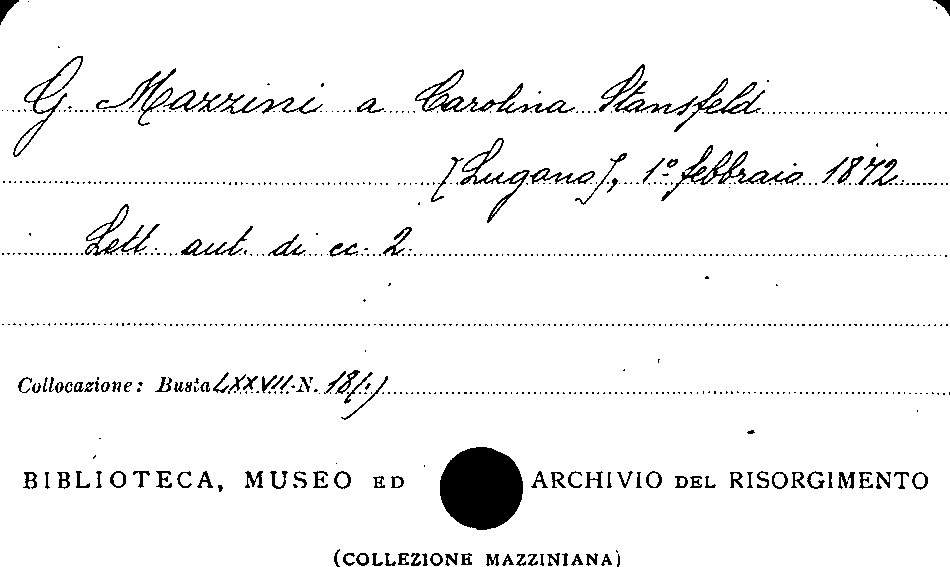 G. Mazzini a Carolina Stansfeld
[Lugano], 1º febbraio 1872.
Lett. aut. di cc. 2.
Collocazione: Busta LXXVII N. 18(1)
BIBLIOTECA, MUSEO ED ARCHIVIO DEL RISORGIMENTO
(COLLEZIONE MAZZINIANA)